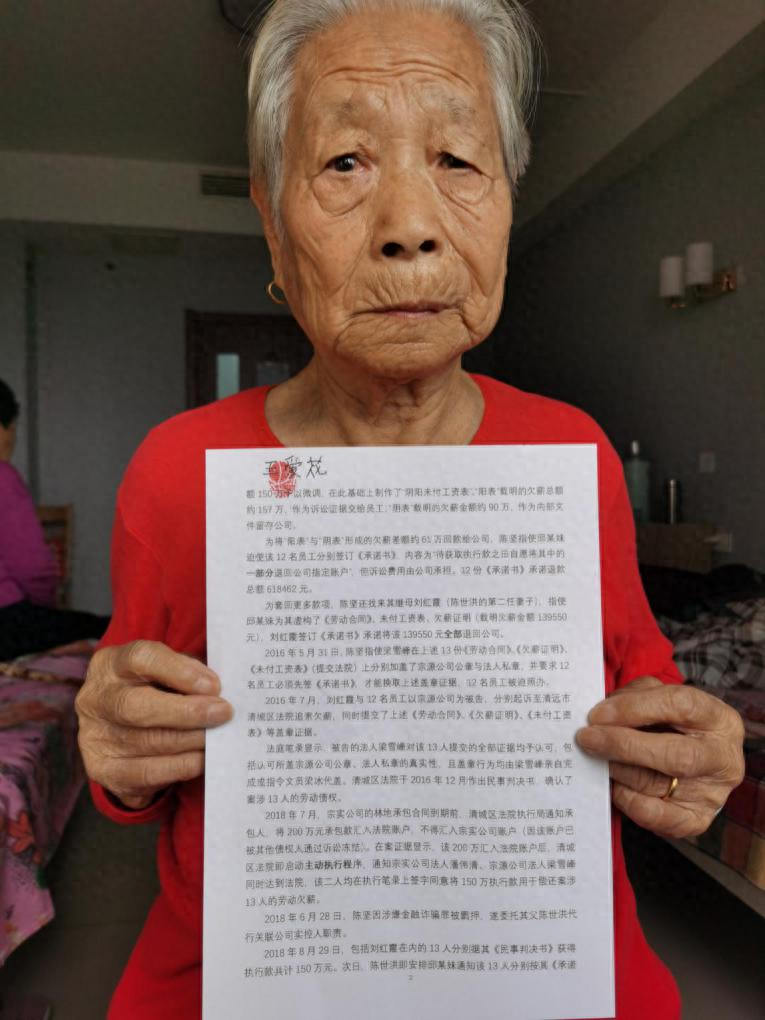 王爱花
额 150 万予以微调，在此基础上制作了“阴阳未付工资表”，“阳表”载明的欠薪总额
约 157 万，作为诉讼证据交给员工；“阴表”载明的欠薪金额约 90 万，作为内部文
件留存公司。
为将“阳表”与“阴表”形成的欠薪差额约 61 万回款给公司，陈坚指使邱某妹
迫使该 12 名员工分别签订《承诺书》，内容为“待获取执行款之日自愿将其中的
一部分退回公司指定账户”，但诉讼费用由公司承担。12 份《承诺书》承诺退款
总额 618462 元。
为套回更多款项，陈坚还找来其继母刘红霞（陈世洪的第二任妻子），指使
邱某妹为其虚构了《劳动合同》、未付工资表、欠薪证明（载明欠薪金额 139550
元），刘红霞签订《承诺书》承诺将该 139550 元全部退回公司。
2016 年 5 月 31 日，陈坚指使梁雪峰在上述 13 份《劳动合同》、《欠薪证明》、
《未付工资表》（提交法院）上分别加盖了宗源公司公章与法人私章，并要求 12
名员工必须先签《承诺书》，才能换取上述盖章证据，12 名员工被迫照办。
2016 年 7 月，刘红霞与 12 名员工以宗源公司为被告，分别起诉至清远市
清城区法院追索欠薪，同时提交了上述《劳动合同》、《欠薪证明》、《未付工资
表》等盖章证据。
法庭笔录显示，被告的法人梁雪峰对该 13 人提交的全部证据均予认可，包
括认可所盖宗源公司公章、法人私章的真实性，且盖章行为均由梁雪峰亲自完
成或指令文员梁冰代盖。清城区法院于 2016 年 12 月作出民事判决书，确认了
案涉 13 人的劳动债权。
2018 年 7 月，宗实公司的林地承包合同到期前，清城区法院执行局通知承
包人，将 200 万元承包款汇入法院账户，不得汇入宗实公司账户（因该账户已
被其他债权人通过诉讼冻结）。在案证据显示，该 200 万汇入法院账户后，清城
区法院即启动主动执行程序，通知宗实公司法人潘伟清、宗源公司法人梁雪峰
同时达到法院，该二人均在执行笔录上签字同意将 150 万执行款用于偿还案涉
13 人的劳动欠薪。
2018 年 6 月 28 日，陈坚因涉嫌金融诈骗罪被羁押，遂委托其父陈世洪代
行关联公司实控人职责。
2018 年 8 月 29 日，包括刘红霞在内的 13 人分别据其《民事判决书》获得
执行款共计 150 万元。次日，陈世洪即安排邱某妹通知该 13 人分别按其《承诺
2